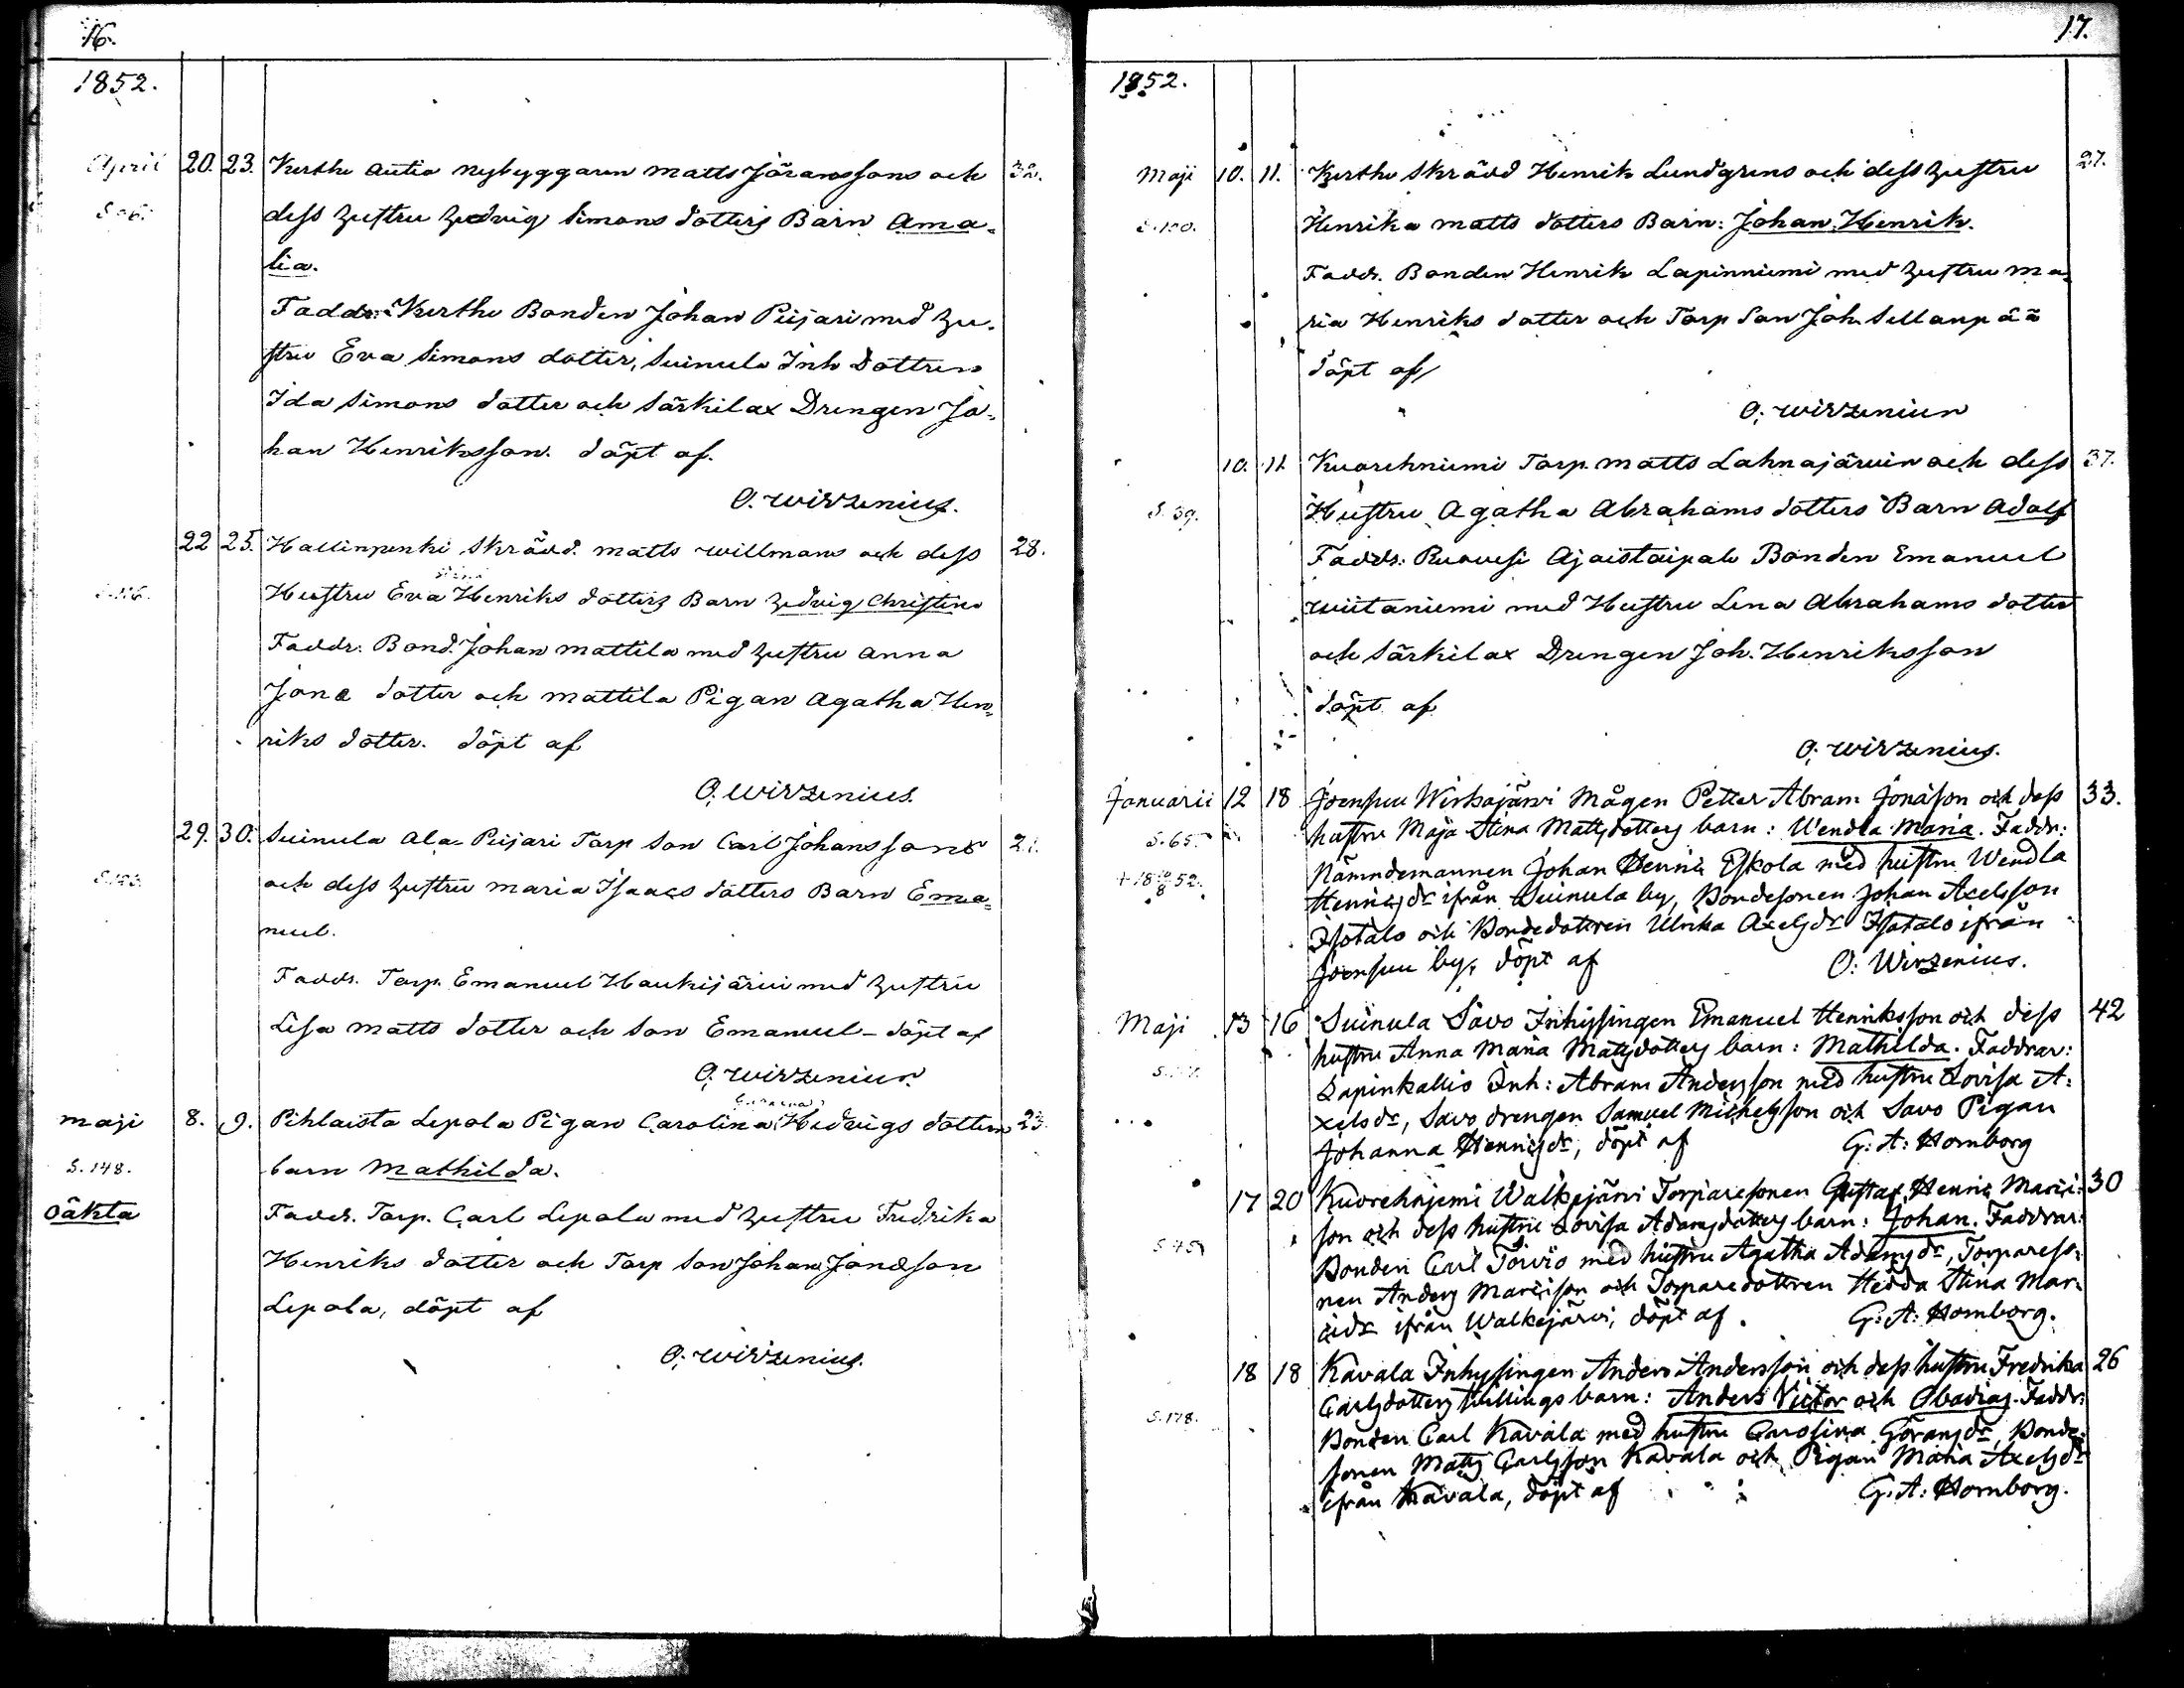 16.
1852.
April 20. 23. Kerthe Autio Nybyggaren Matts Jöranssons och 32.
dess Hustru Hedvig Simons dotters Barn Ama-
lia.
Faddr: Kerthe Bonden Johan Piijari med Hu-
stru Eva Simons dotter, Suinula Inh Dottren
Ida Simons dotter och Särkilax Drengen Jo-
han Henriksson. döpt af.
O. Wirzenius.
22 25. Hallinpenki Skrädd. Matts Willmans och dess 28.
Stina
Hustru Eva Henriks dotters Barn Hedvig Christina
Faddr. Bond. Johan Mattila med Hustru Anna
Jonæ dotter och Mattila Pigan Agatha Hen-
riks dotter. döpt af
O. Wirzenius.
29. 30. Suinula Ala-Piijari Torp Son Carl Johanssons
och dess Hustru Maria Isaacs dotters Barn Ema-
nuel.
Faddr. Torp. Emanuel Haukijärvi med Hustru
Lisa Matts dotter och Son Emanuel - döpt af
O. Wirzenius
Maji 8. 9. Pihlaisto Lepola Pigan Carolina Hedvigs dotters 23.
S. 148. barn Mathilda.
Oäkta Faddr. Torp. Carl Lepola med Hustru Fredrika
Henriks dotter och Torp Son Johan Jonæson
Lepola, döpt af
O. Wirzenius.
17.
1852.
Maji 10. 11. Kerthe Skrädd Henrik Lundgrens och dess Hustru 27.
Henrika Matts dotters Barn: Johan Henrik.
Faddr. Bonden Henrik Lapinniemi med Hustru Ma-
ria Henriks dotter och Torp Son Joh. Sellanpää
döpt af
O. Wirzenius
10. 11. Kuorehniemi Torp. Matts Lahnajärvin och dess 37.
S. 39. Hustru Agatha Abrahams dotters Barn Adolf
Faddr: Ruovesi Ajaistaipale Bonden Emanuel
Wiitaniemi med Hustru Lena Abrahams dotter
och Särkilax Drengen Joh. Henriksson
döpt af
O. Wirzenius.
Januarii 12 18 Joensuu Wirkajärvi Mågen Petter Abram Jonæson och dess 33.
S. 65. hustru Maja Stina Mattsdotters barn: Wendla Maria. Faddr:
Nämndemannen Johan Henric Eskola med hustru Wendla
Henricsdr ifrån Suinula by, Bondesonen Johan Axelsson
Isotalo och Bondedottren Ulrika Axelsdr Isotalo ifrån
Joensuu by, döpt af O: Wirzenius.
Maji 13 16 Suinula Savo Inhysingen Emanuel Henriksson och dess 42
hustru Anna Maria Mattsdotters barn: Mathilda. Faddrar:
Lapinkallio Inh: Abram Andersson med hustru Lovisa A-
xelsdr, Savo drengen Samuel Michelsson och Savo Pigan
Johanna Henricsdr, döpt af G: A: Homborg
17 20 Kuorehniemi Walkejärvi Torparesonen Gustaf Henric Marci- 30
son och dess hustru Lovisa Adamsdotters barn: Johan. Faddrar:
Bonden Carl Toivio med hustru Agatha Adamsdr, Torpareso-
nen Anders Marcison och Torparedottren Hedda Stina Mar-
cidr ifrån Walkejärvi, döpt af. G: A: Homborg.
18 18 Kavala Inhysingen Anders Andersson och dess hustru Fredrika 26
S. 178. Carlsdotters twillings barn: Anders Victor och Obadias. Faddr:
Bonden Carl Kavala med hustru Carolina Göransdr, Bonde-
sonen Matts Carlsson Kavala och Pigan Maria Axelsdr
ifrån Kavala, döpt af G: A: Homborg.